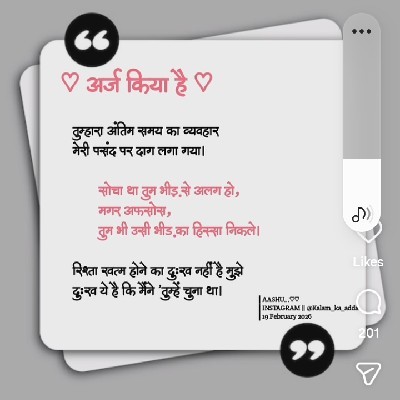 ♡ अर्ज किया है ♡
तुम्हारा अंतिम समय का व्यवहार
मेरी पसंद पर दाग लगा गया।
सोचा था तुम भीड़ से अलग हो,
मगर अफसोस,
तुम भी उसी भीड़ का हिस्सा निकले।
रिश्ता खत्म होने का दुःख नहीं है मुझे
दुःख ये है कि मैंने 'तुम्हें चुना था।
AASHU...♡♡
INSTAGRAM || @Kalam_ka_adda
19 February 2026
Likes
201